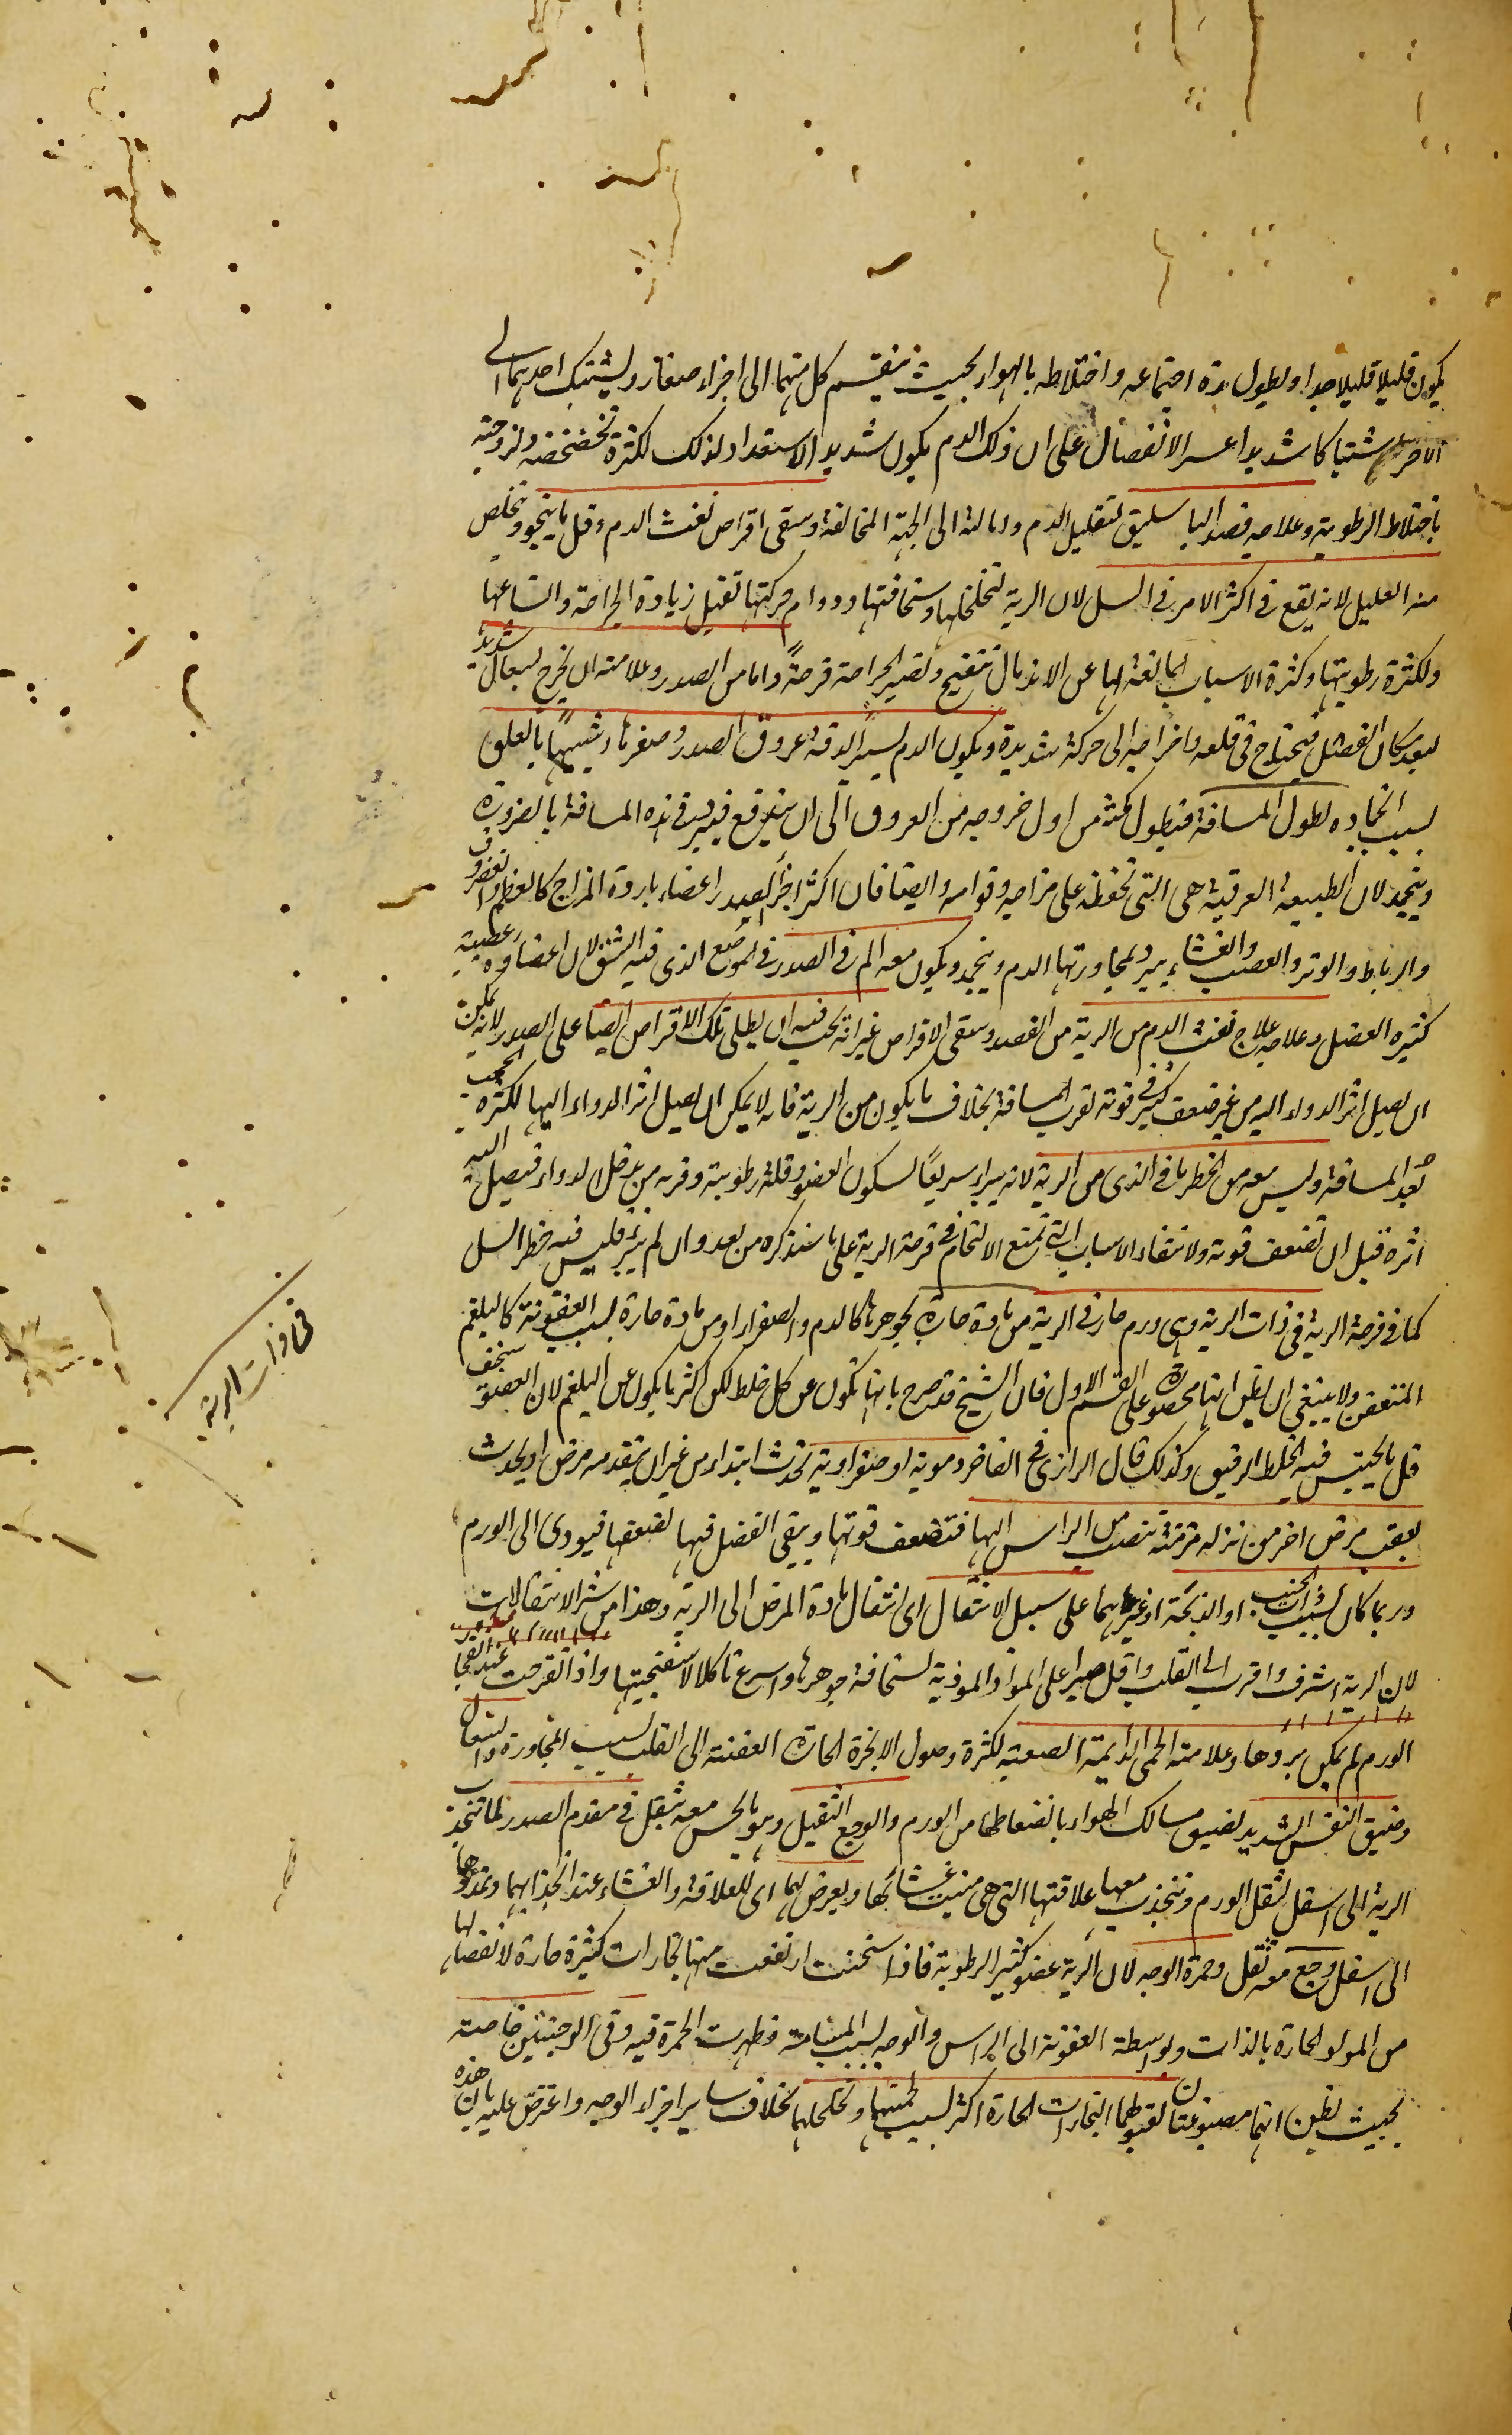 يكون قليلا قليلا جدا ولطول مدة اجتماعه واختلاطه بالهواء بحيث ينقسم كل منهما الى اجزاء صغار ويشتبك احدهما الى
الآخر اشتباكا شديدا عسر الانفصال على ان ذلك الدم يكون شديد الاستعداد لذلك لكثرة تخضخضه ولزوجته
باختلاط الرطوبة وعلاجه فصد الباسليق لتقليل الدم وامالته الى الجهة المخالفة وسقى اقراص نفث الدم وقل ما ينجو ويخلص
منه العليل لانه يقع فى اكثر الامر فى السل لان الرية لتخلخلها وسخافتها ودوام حركتها تقبل زيادة الجراحة واتساعها
ولكثرة رطوبتها وكثرة الاسباب المانعة لها عن الاندمال تتقيح وتصير الجراحة قرحةً واما من الصدر وعلامته ان يخرج بسعال شديد
لبعد مكان الفضل فيحتاج فى قلعه واخراجه الى حركة شديدة ويكون الدم يسيرا لدقة عروق الصدر وصغرها وشبيهاً بالعلق
لسبب انجماده لطول المسافة فيطول مكثه من اول خروجه من العروق الى ان يندفع فيبرد فى هذه المسافة بالضرورة
وينجمد لان الطبيعة العرقية هى التى تحفظه على مزاجه وقوامه وايضا فان اكثر اجزأ الصدر اعضاء باردة المزاج كالعظم والغضروف
والرباط والوتر والعصب والغشاء يبرد لمجاورتها الدم وينجمد ويكون معه الم فى الصدر فى الموضع الذى فيه الشق لان اعضاوه عصبية
كثيرة العضل وعلاجه علاج نفث الدم من الرية من الفصد وسقى الاقراص غير انه يجب فيه ان يطلى تلك الاقراص ايضا على الصدر لانه يمكن
ان يصل اثر الدواء اليه من غير ضعف كثير فى قوته لقرب المسافة بخلاف ما يكون من الرية فانه لا يمكن ان يصل اثر الدواء اليها لكثرة الحجب
وبُعد المسافة وليس معه من الخطر ما فى الذى من الرية لانه يبراء سريعًا لسكون العضو وقلة رطوبته وقربه من مدخل الدواء فيصل اليه
اثره قبل ان تضعف قوته ولانتفاء الاسباب التى تمنع الالتحام فى قرحة الرية على ما سنذكره من بعد وان لم يبرء فليس فيه خطر السل
كما فى قرحة الرية فى ذات الرية وهى ورم حار فى الرية من مادة حارة بجوهرها كالدم والصفراء او من مادة حارة لسبب العفونة كالبلغم
المتعفن ولا ينبغى ان يظن انها محصورة على القسم الاول فان الشيخ قد صرح بانها تكون عن كل خلط لكن اكثر ما يكون عن البلغم لان العضو سخيف
قل ما يحتبس فيه الخلط الرقيق وكذلك قال الرازى فى الفاخر دموية او صفراوية تحدث ابتداء من غير ان يتقدمه مرض او يحدث
بعقب مرض اخر من نزلة مزمنة تنصب من الراس اليها فتضعف قوتها ويبقى الفضل فيها لضعفها فيودى الى الورم
وربما كان لسبب ذات الجنب او الذبحة او غيرهما على سبيل الانتقال اى انتقال مادة المرض الى الرية وهذا من شر الانتقالات
لان الرية اشرف واقرب الى القلب واقل صبرا على المواد الموذية لسخافة جوهرها واسرع تاكلا لاسفنجيتها واذا تقرحت عند انفجار
الورم لم يمكن برؤها وعلامته الحمى الدايمة الصعبة لكثرة وصول الابخرة الحارة العفنة الى القلب لسبب المجاورة والسعال
وضيق النفس الشديد لضيق مسالك الهواء بانضغاطها من الورم والوجع الثقيل وهو ما يحس معه ثقل فى مقدم الصدر لما تنجذب
الرية الى اسفل لثقل الورم وتنجذب معها علاقتها التى هى منبت غشائها ويعرض لهما اى للعلاقة والغشاء عند انجذابهما وتمددهما
الى اسفل وجع معه ثقل وحمرة الوجه لان الرية عضو كثير الرطوبة فاذا سخنت ارتفعت منها بخارات كثيرة حارة لانفصالها
من المواد الحارة بالذات وبواسطة العفونة الى الراس والوجه لسبب المسامتة فظهرت الحمرة فيه وفى الوجنتين خاصة
بحيث يظن انهما مصبوغتان لقبولهما البخارات الحارة اكثر لسبب لحميتها وتخلخلهما بخلاف ساير اجزاء الوجه واعترض عليه بان هذه
فى ذات الرية